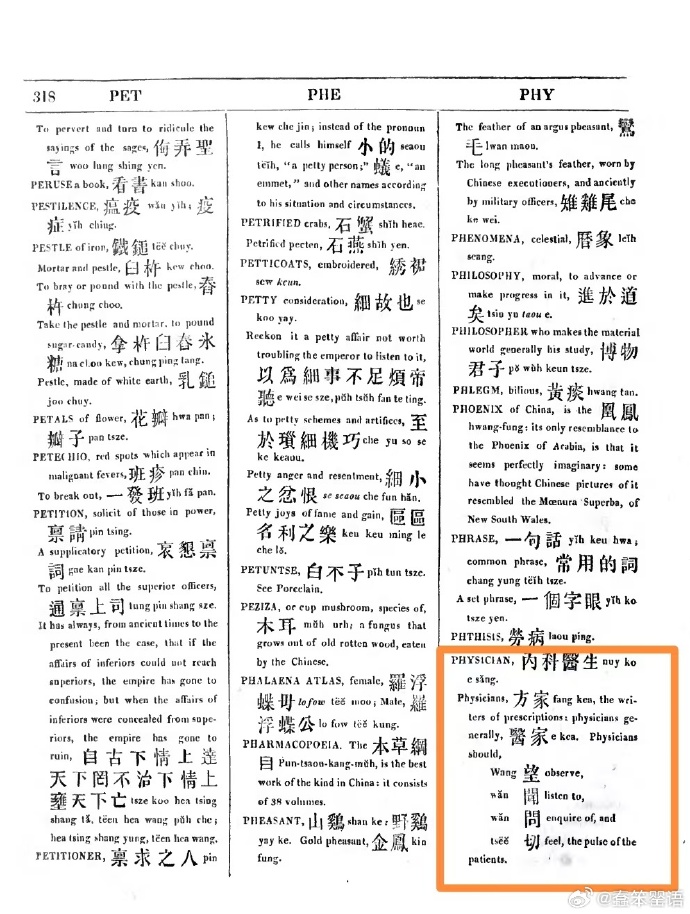 318 PET PHE PHY
To pervert and turn to ridicule the
sayings of the sages, 侮弄聖
言 woo lung shing yen.
PERUSE a book, 看書 kan shoo.
PESTILENCE, 瘟疫 wăn yĭh; 疫
症 yĭh ching.
PESTLE of iron, 鐵鎚 tëĕ chuy.
Mortar and pestle, 臼杵 kew choo.
To bray or pound with the pestle, 舂
杵 chung choo.
Take the pestle and mortar, to pound
sugar-candy, 拿杵臼舂氷
糖 na choo kew, chung ping tang.
Pestle, made of white earth, 乳鎚
joo chuy.
PETALS of flower, 花瓣 hwa pan;
瓣子 pan tsze.
PETECHIO, red spots which appear in
malignant fevers, 班疹 pan chin.
To break out, 一發班 yĭh fă pan.
PETITION, solicit of those in power,
禀請 pin tsing.
A supplicatory petition, 哀懇禀
詞 gae kan pin tsze.
To petition all the superior officers,
通禀上司 tung pin shang sze.
It has always, from ancient times to the
present been the case, that if the
affairs of inferiors could not reach
superiors, the empire has gone to
confusion; but when the affairs of
inferiors were concealed from supe-
riors, the empire has gone to
ruin, 自古下情上達
天下罔不治下情上
壅天下亡 tsze koo hea tsing
shang tă, tëen hea wang pŭh che;
hea tsing shang yung, tëen hea wang.
PETITIONER, 禀求之人 pin
kew che jin; instead of the pronoun
I, he calls himself 小的 seaou
tëĭh, "a petty person;" 蟻 e, "an
emmet," and other names according
to his situation and circumstances.
PETRIFIED crabs, 石蟹 shĭh heae.
Petrified pecten, 石燕 shĭh yen.
PETTICOATS, embroidered, 綉裙
sew keun.
PETTY consideration, 細故也 se
koo yay.
Reckon it a petty affair not worth
troubling the emperor to listen to it,
以爲細事不足煩帝
聽 e wei se sze, pŭh tsŭh fan te ting.
As to petty schemes and artifices, 至
於瑣細機巧 che yu so se
ke keaou.
Petty anger and resentment, 細小
之忿恨 se seaou che fun hăn.
Petty joys of fame and gain, 區區
名利之樂 keu keu ming le
che lŏ.
PETUNTSE, 白不子 pĭh tun tsze.
See Porcelain.
PEZIZA, or cup mushroom, species of,
木耳 mŭh urh; a fungus that
grows out of old rotten wood, eaten
by the Chinese.
PHALAENA ATLAS, female, 羅浮
蝶母 lo fow tëĕ moo; Male, 羅
浮蝶公 lo fow tëĕ kung.
PHARMACOPOEIA. The 本草綱
目 Pun-tsaou-kang-mŭh, is the best
work of the kind in China: it consists
of 38 volumes.
PHEASANT, 山鷄 shan ke: 野鷄
yay ke. Gold pheasant, 金鳳 kin
fung.
The feather of an argus pheasant,
毛 lwan maou.
The long pheasant's feather, worn by
Chinese executioners, and anciently
by military officers, 雉雞尾 che
ke wei.
PHENOMENA, celestial, 曆象 leĭh
seang.
PHILOSOPHY, moral, to advance or
make progress in it, 進於道
矣 tsin yu taou e.
PHILOSOPHER who makes the material
world generally his study, 博物
君子 pŏ wŭh keun tsze.
PHLEGM, bilious, 黃痰 hwang tan.
PHOENIX of China, is the 凰鳳
hwang-fung: its only resemblance to
the Phoenix of Arabia, is that it
seems perfectly imaginary: some
have thought Chinese pictures of it
resembled the Mœnura Superba, of
New South Wales.
PHRASE, 一句話 yĭh keu hwa;
common phrase, 常用的詞
chang yung tëĭh tsze.
A set phrase, 一個字眼 yĭh ko
tsze yen.
PHTHISIS, 勞病 laou ping.
PHYSICIAN, 內科醫生 nuy ko
e săng.
Physicians, 方家 fang kea, the wri-
ters of prescriptions: physicians ge-
nerally, 醫家 e kea. Physicians
should,
Wang 望 observe,
wăn 聞 listen to,
wăn 問 enquire of, and
tsëĕ 切 feel, the pulse of the
patients.